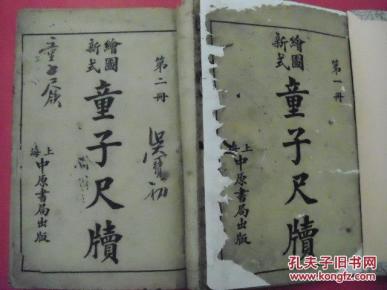 第一冊
繪圖
新式
童子尺牘
上海
中原書局出版
第二冊
繪圖
新式
童子尺牘
上海
中原書局出版
童子
孔夫子旧书网